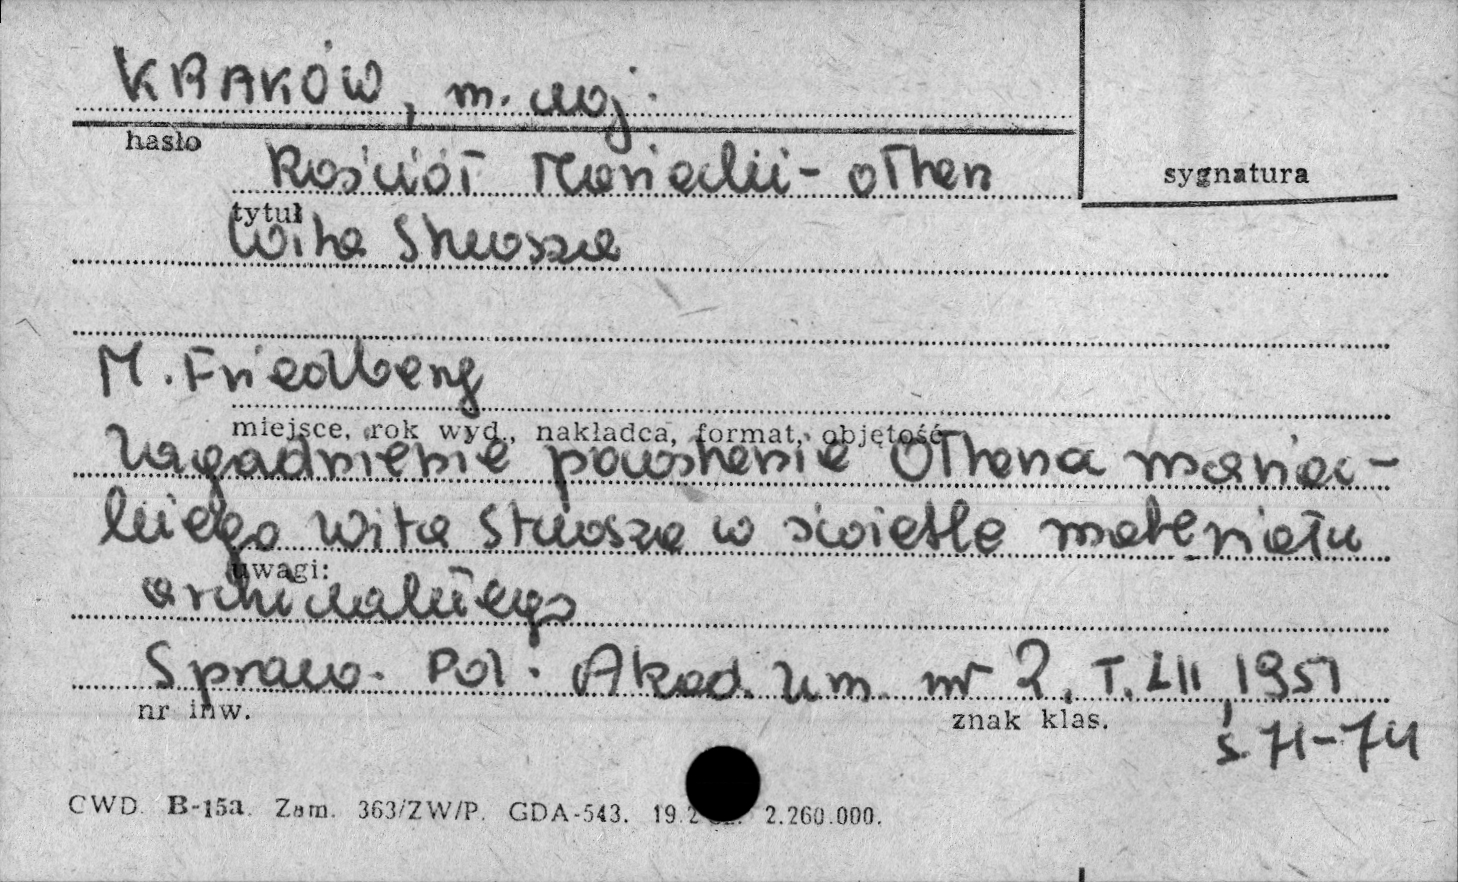 KRAKÓW, m. woj.
hasło
Kościół Mariacki - ołtarz
sygnatura
tytuł
Wita Stwosza
M. Friedberg
miejsce, rok wyd., nakładca, format, objętość
Zagadnienie powstania ołtarza mariac-
kiego Wita Stwosza w świetle materiału
uwagi:
archiwalnego
Spraw. Pol. Akad. Um. nr 2, T. LII, 1951
nr inw.
znak klas.
s. 71-74
CWD. B-15a. Zam. 363/ZW/P. GDA-543. 2.260.000.